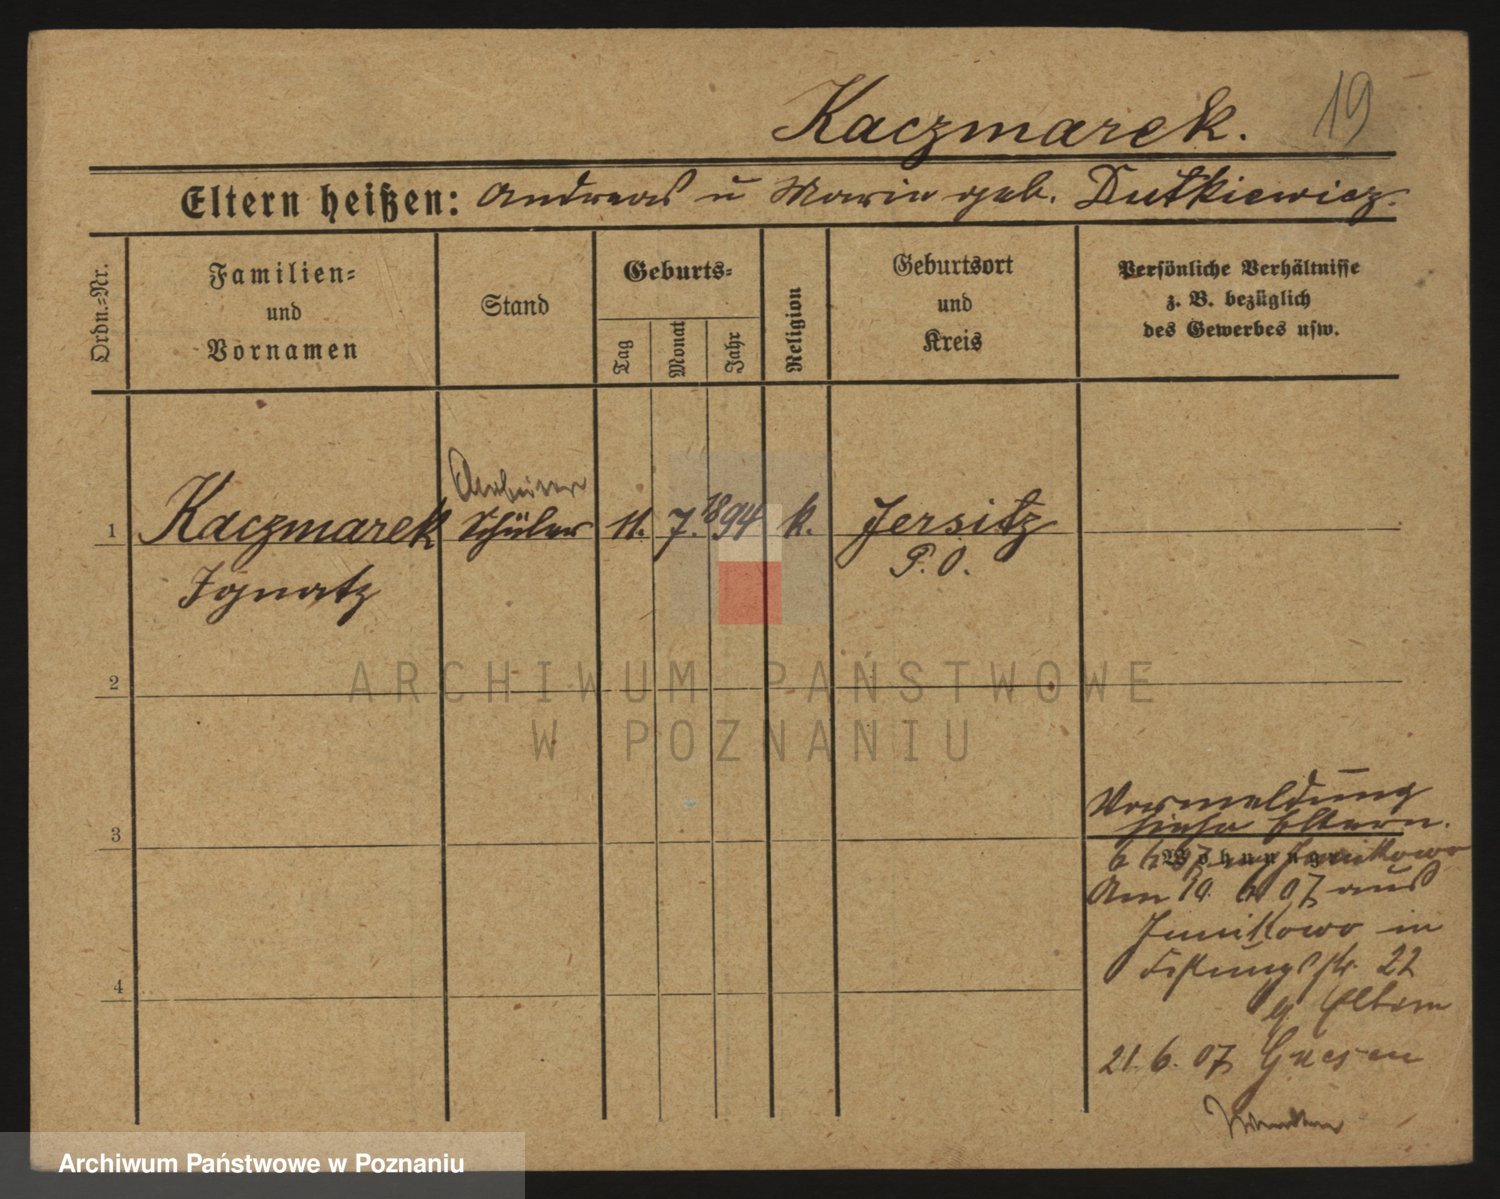 Kaczmarek. 19
Eltern heißen: Andreas u Maria geb. Dutkiewicz.
Ordn.-Nr.
Familien-
und
Vornamen
Stand
Geburts-
Tag
Monat
Jahr
Religion
Geburtsort
und
Kreis
Persönliche Verhältnisse
z. B. bezüglich
des Gewerbes usw.
Arbeiter
1 Kaczmarek Schüler 11. 7. 1894 k. Jersitz
Ignatz P. O.
2
3
4
ARCHIWUM PAŃSTWOWE
W POZNANIU
Vormeldung
siehe Eltern.
Wohnung
6 Junikowo
Am 10. 6 07 aus
Junikowo in
Festungsstr. 22
Eltern
21. 6. 07 Gnesen
Archiwum Państwowe w Poznaniu